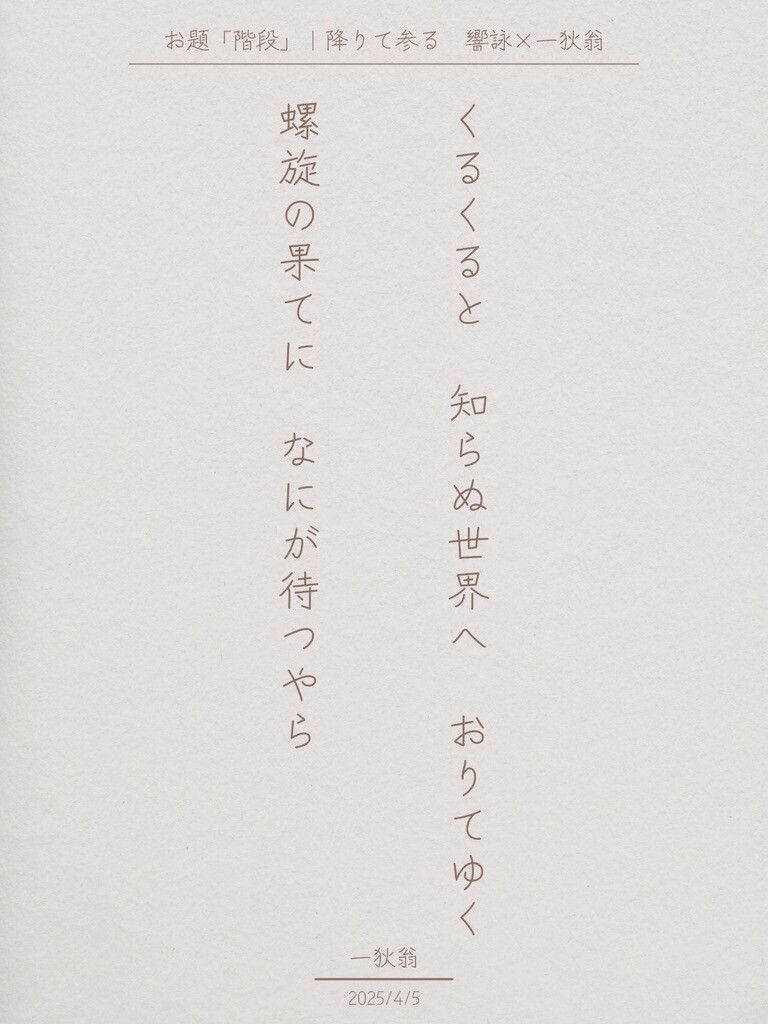 お題「階段」｜降りて参る　響詠×一狄翁
くるくると　知らぬ世界へ　おりてゆく
螺旋の果てに　なにが待つやら
一狄翁
2025/4/5